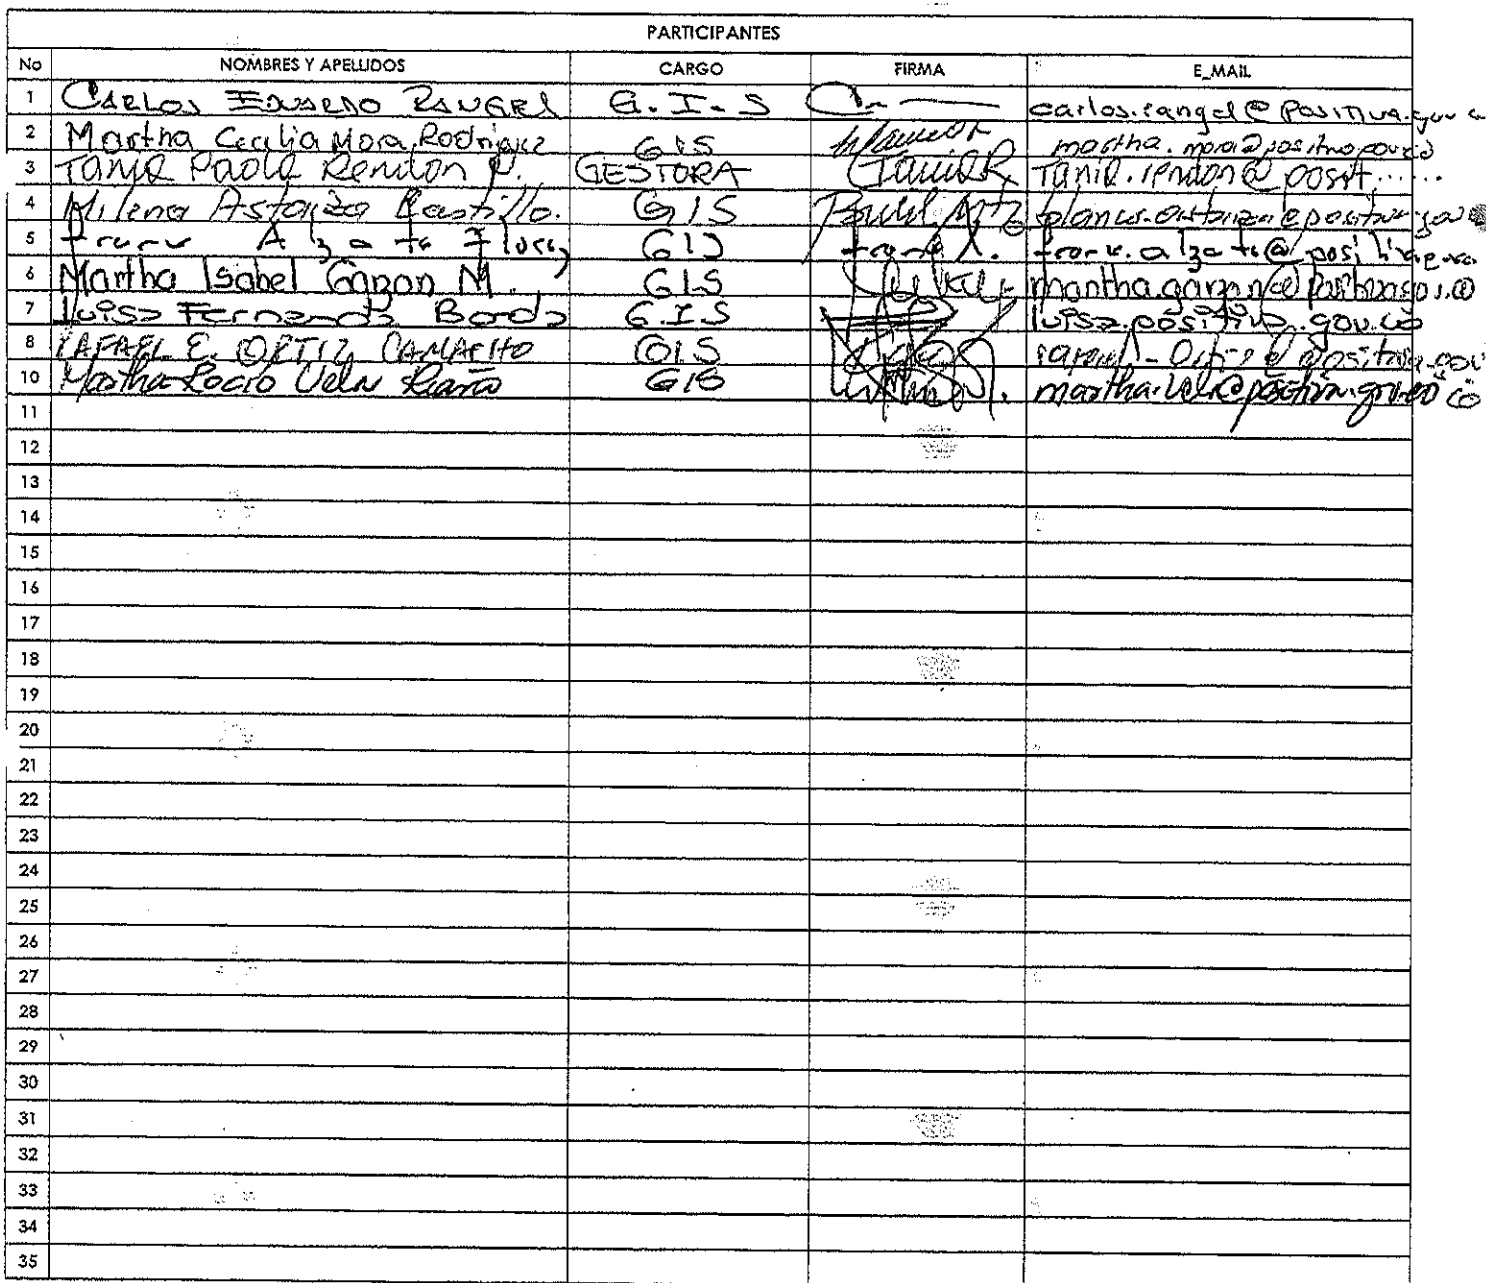 PARTICIPANTES
No NOMBRES Y APELLIDOS CARGO FIRMA E_MAIL
1 CARLOS EDUARDO RANGEL G.I.S carlos.rangel@positiva.gov.co
2 Martha Cecilia Mora Rodriguez GIS martha.mora@positiva.gov.co
3 Tania Paola Rendon P. GESTORA TaniaR Tania.rendon@posit......
4 Milena Astaiza Castillo. GIS
5 Alzate GIS
6 Martha Isabel Garzon M. GIS martha.garzon@positiva.gov.co
7 Luisa Fernanda Borda G.I.S luisa.positiva.gov.co
8 RAFAEL E. ORTIZ CAMACHO GIS rafael-Ortiz@positiva.gov
10 Martha Rocio Vela Riaño GIS martha.vela@positiva.gov.co
11
12
13
14
15
16
17
18
19
20
21
22
23
24
25
26
27
28
29
30
31
32
33
34
35